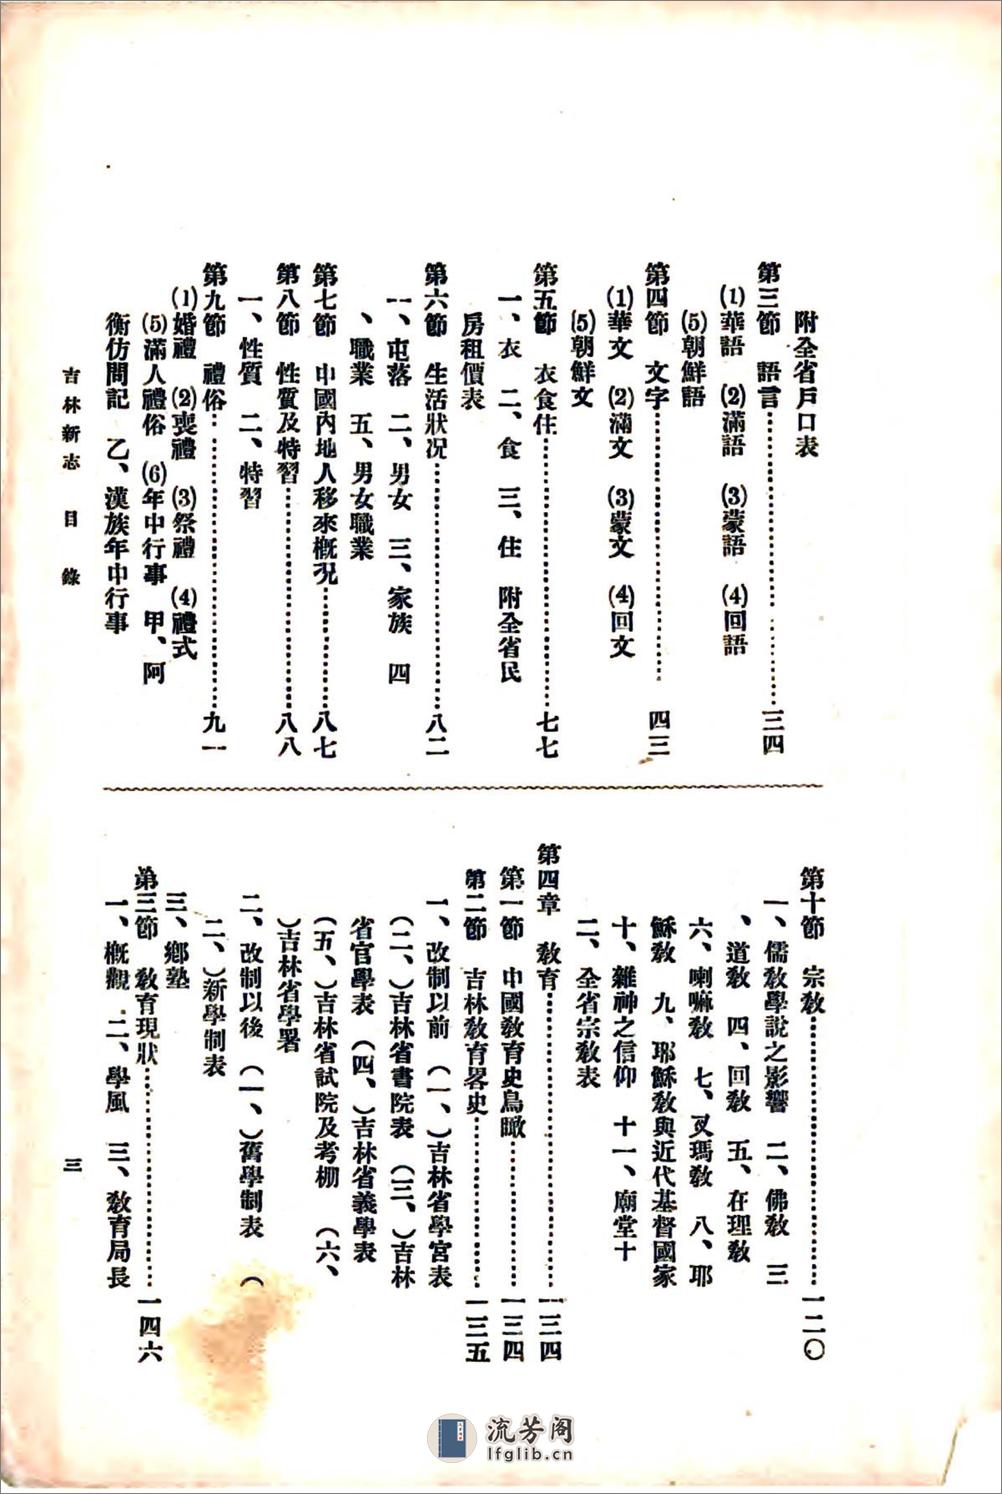 附全省戶口表
第三節　語言……………三四
⑴華語　⑵滿語　⑶蒙語　⑷回語
⑸朝鮮語
第四節　文字……………四三
⑴華文　⑵滿文　⑶蒙文　⑷回文
⑸朝鮮文
第五節　衣食住……………七七
一、衣　二、食　三、住　附全省民
房租價表
第六節　生活狀况……………八二
一、屯落　二、男女　三、家族　四
、職業　五、男女職業
第七節　中國內地人移來槪況……………八七
第八節　性質及特習……………八八
一、性質　二、特習
第九節　禮俗……………九一
⑴婚禮　⑵喪禮　⑶祭禮　⑷禮式
⑸滿人禮俗　⑹年中行事　甲、阿
衡仿問記　乙、漢族年中行事
第十節　宗敎……………一二〇
一、儒敎學說之影響　二、佛敎　三
、道敎　四、回敎　五、在理敎
六、喇嘛敎　七、叉瑪敎　八、耶
穌敎　九、耶穌敎與近代基督國家
十、雜神之信仰　十一、廟堂十
二、全省宗敎表
第四章　敎育……………一三四
第一節　中國敎育史鳥瞰……………一三四
第二節　吉林敎育畧史……………一三五
一、改制以前　（一、）吉林省學宮表
（二、）吉林省書院表　（三、）吉林
省官學表　（四、）吉林省義學表
（五、）吉林省試院及考棚　（六、
）吉林省學署
二、改制以後　（一、）舊學制表　（
二、）新學制表
三、鄕塾
第三節　敎育現狀……………一四六
一、槪觀　二、學風　三、敎育局長
吉林新志　目錄
三
流芳阁
lfglib.cn